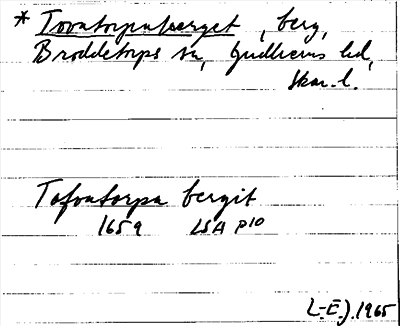 * Tovatorpaberget, berg,
Broddetorps sn, Gudhems hd,
Skar. l.
Tofvatorpa bergit
1659 LSA P10
L-E J. 1965